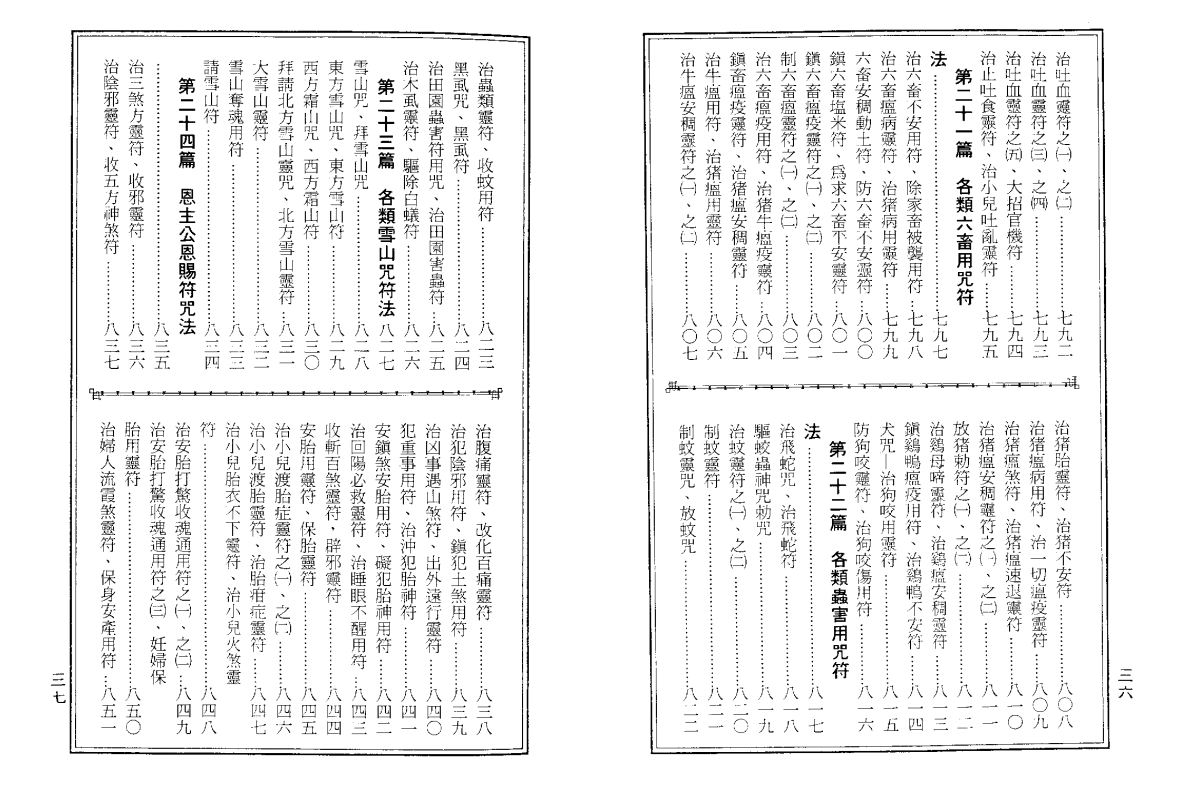 治吐血靈符之㈠、之㈡……七九二
治吐血靈符之㈢、之㈣……七九三
治吐血靈符之㈤、大招官機符……七九四
治止吐食靈符、治小兒吐亂靈符……七九五
第二十一篇　各類六畜用咒符
法……七九七
治六畜不安用符、除家畜被襲用符……七九八
治六畜瘟病靈符、治猪病用靈符……七九九
六畜安稠動土符、防六畜不安靈符……八〇〇
鎭六畜塩米符、爲求六畜平安靈符……八〇一
鎭六畜瘟疫靈符之㈠、之㈡……八〇二
制六畜瘟靈符之㈠、之㈡……八〇三
治六畜瘟疫用符、治猪牛瘟疫靈符……八〇四
鎭畜瘟疫靈符、治猪瘟安稠靈符……八〇五
治牛瘟用符、治猪瘟用靈符……八〇六
治牛瘟安稠靈符之㈠、之㈡……八〇七
治猪胎靈符、治猪不安符……八〇八
治猪瘟病用符、治一切瘟疫靈符……八〇九
治猪瘟煞符、治猪瘟速退靈符……八一〇
治猪瘟安稠靈符之㈠、之㈡……八一一
放猪勅符之㈠、之㈡……八一二
治鷄母啼靈符、治鷄瘟安稠靈符……八一三
鎭鷄鴨瘟疫用符、治鷄鴨不安符……八一四
犬咒—治狗咬用靈符……八一五
防狗咬靈符、治狗咬傷用符……八一六
第二十二篇　各類蟲害用咒符
法……八一七
治飛蛇咒、治飛蛇符……八一八
驅蛟蟲神咒勅咒……八一九
治蚊靈符之㈠、之㈡……八二〇
制蚊靈符……八二一
制蚊靈咒、放蚊咒……八二二
三六
治蟲類靈符、收蚊用符……八二三
黑虱咒、黑虱符……八二四
治田園蟲害符用咒、治田園害蟲符……八二五
治木虱靈符、驅除白蟻符……八二六
第二十三篇　各類雪山咒符法……八二七
雪山咒、拜雪山咒……八二八
東方雪山咒、東方雪山符……八二九
西方霜山咒、西方霜山符……八三〇
拜請北方雪山靈咒、北方雪山靈符……八三一
大雪山靈符……八三二
雪山奪魂用符……八三三
請雪山符……八三四
第二十四篇　恩主公恩賜符咒法
……八三五
治三煞方靈符、收邪靈符……八三六
治陰邪靈符、收五方神煞符……八三七
治腹痛靈符、改化百痛靈符……八三八
治犯陰邪用符、鎭犯土煞用符……八三九
治凶事遇山煞符、出外遠行靈符……八四〇
犯重事用符、治沖犯胎神符……八四一
安鎭煞安胎用符、礙犯胎神用符……八四二
治回陽必救靈符、治睡眼不醒用符……八四三
收斬百煞靈符、辟邪靈符……八四四
安胎用靈符、保胎靈符……八四五
治小兒渡胎症靈符之㈠、之㈡……八四六
治小兒渡胎靈符、治胎疳症靈符……八四七
治小兒胎衣不下靈符、治小兒火煞靈
符……八四八
治安胎打驚收魂通用符之㈠、之㈡……八四九
治安胎打驚收魂通用符之㈢、妊婦保
胎用靈符……八五〇
治婦人流霞煞靈符、保身安產用符……八五一
三七